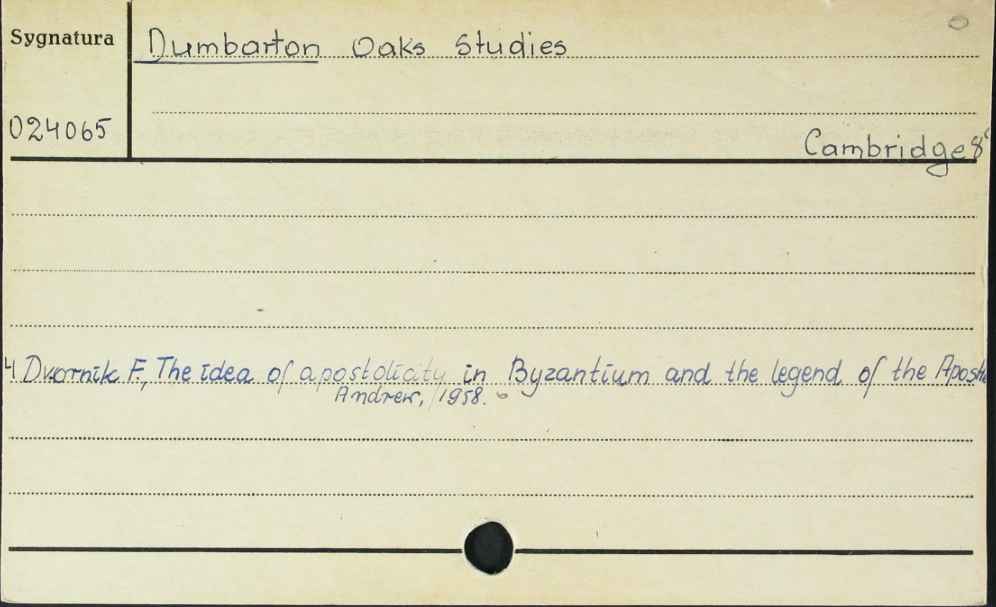 Sygnatura
Dumbarton Oaks Studies
024065
Cambridge 8°
4 Dvornik F., The idea of apostolicity in Byzantium and the legend of the Apostle
Andrew, 1958.